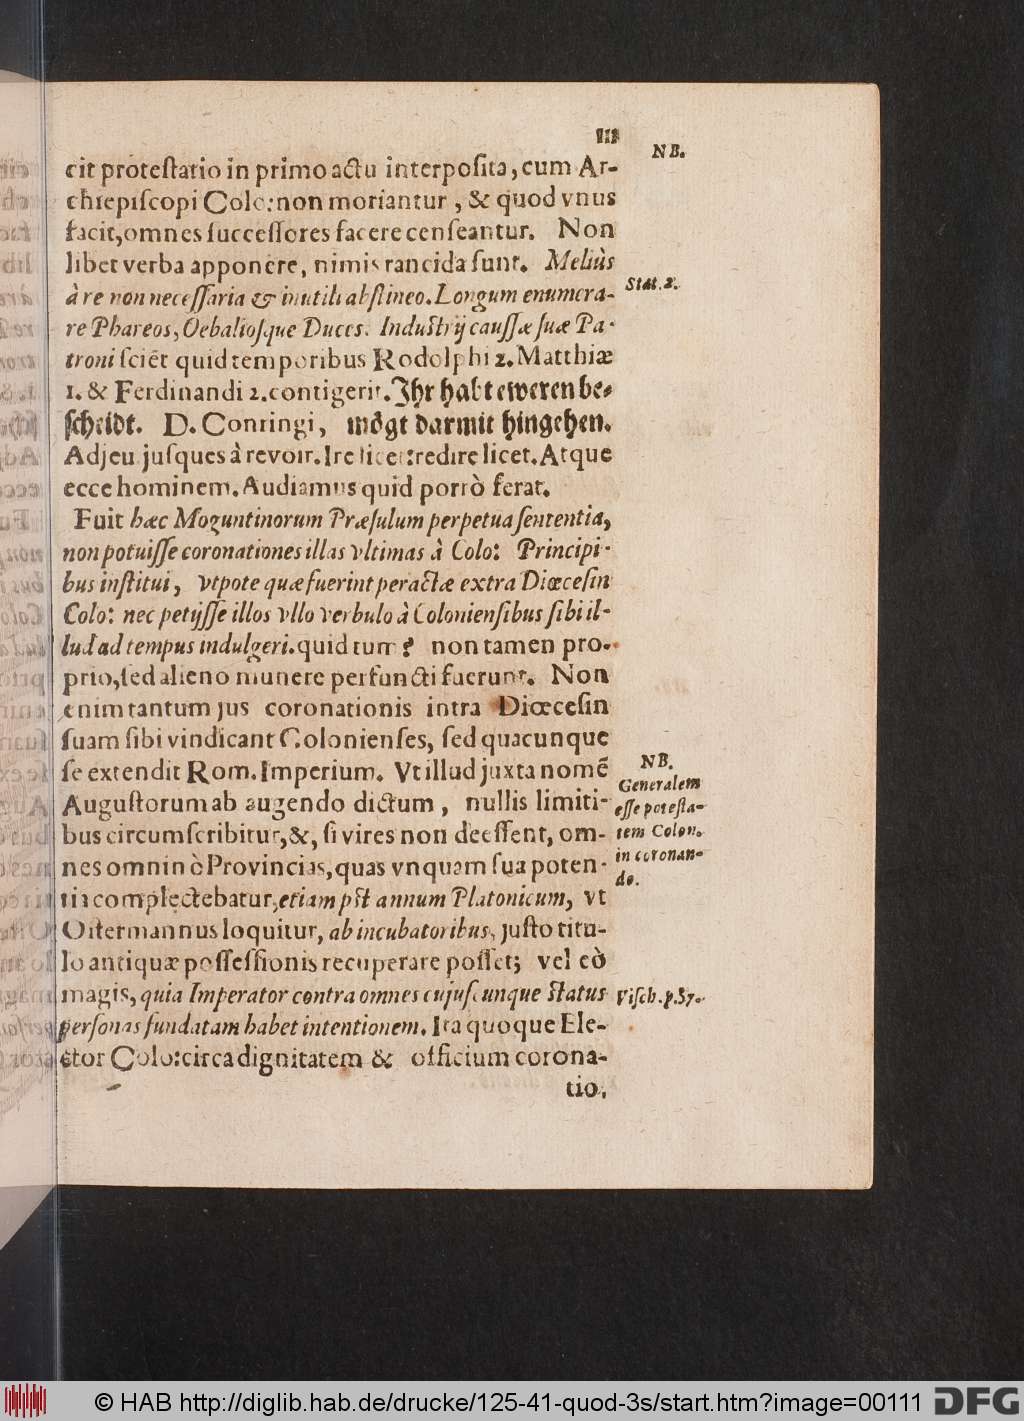 111
NB.
cit protestatio in primo actu interposita, cum Ar-
chiepiscopi Colo: non moriantur, & quod vnus
facit, omnes successores facere censeantur. Non
libet verba apponere, nimis rancida sunt. Meliùs
à re non necessaria & inutili abstineo. Longum enumera-
Stat. 2.
re Phareos, Oebaliosque Duces. Industrij caussæ suæ Pa-
troni sciēt quid temporibus Rodolphi 2. Matthiæ
1. & Ferdinandi 2. contigerit. Ihr habt eweren be-
scheidt. D. Conringi, mögt darmit hingehen.
Adjeu jusques à revoir. Ire licet: redire licet. Atque
ecce hominem. Audiamus quid porrò ferat.
Fuit hæc Moguntinorum Præsulum perpetua sententia,
non potuisse coronationes illas vltimas à Colo: Principi-
bus institui, vtpote quæ fuerint peractæ extra Diœcesin
Colo: nec petijsse illos vllo verbulo à Coloniensibus sibi il-
lud ad tempus indulgeri. quid tum? non tamen pro-
prio, sed alieno munere perfuncti fuerunt. Non
enim tantum jus coronationis intra Diœcesin
suam sibi vindicant Colonienses, sed quacunque
se extendit Rom. Imperium. Vt illud juxta nomē
Augustorum ab augendo dictum, nullis limiti-
bus circumscribitur, &, si vires non deessent, om-
nes omninò Provincias, quas vnquam sua poten-
tia complectebatur, etiam pōst annum Platonicum, vt
NB.
Generalem
esse potesta-
tem Colon.
in coronan-
do.
Ostermannus loquitur, ab incubatoribus, justo titu-
lo antiquæ possessionis recuperare posset; vel eò
magis, quia Imperator contra omnes cujuscunque status
Visch. p. 57.
personas fundatam habet intentionem. Ita quoque Ele-
ctor Colo: circa dignitatem & officium corona-
tio.
© HAB http://diglib.hab.de/drucke/125-41-quod-3s/start.htm?image=00111
DFG